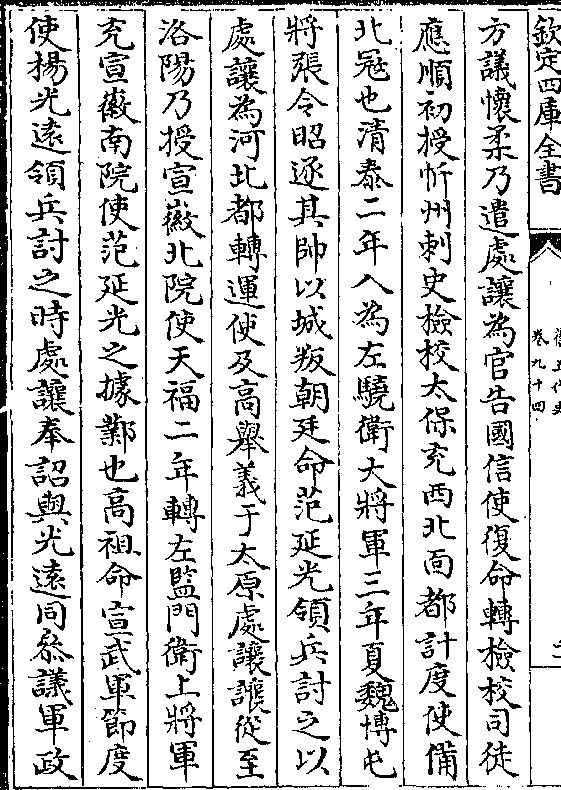 欽定四庫全書
舊五代史
卷九十四
二
方議懷柔乃遣處讓為官告國信使復命轉檢校司徒
應順初授忻州刺史檢校太保充西北面都計度使備
北冦也清泰二年入為左驍衛大將軍三年夏魏博屯
將張令昭逐其帥以城叛朝廷命范延光領兵討之以
處讓為河北都轉運使及高舉義于太原處讓從至
洛陽乃授宣徽北院使天福二年轉左監門衛上將軍
充宣徽南院使范延光之據鄴也高祖命宣武軍節度
使揚光遠領兵討之時處讓奉詔與光遠同叅議軍政